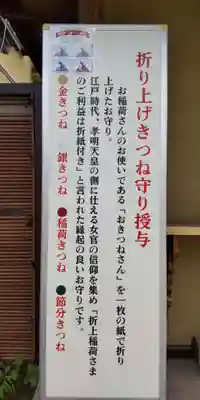 折り上げきつね守り授与
お稲荷さんのお使いである「おきつねさん」を一枚の紙で折り
上げたお守り。
江戸時代、孝明天皇の側に仕える女官の信仰を集め「折上稲荷さま
のご利益は折紙付き」と言われた縁起の良いお守りです。
●金きつね　●銀きつね　●稲荷きつね　●節分きつね